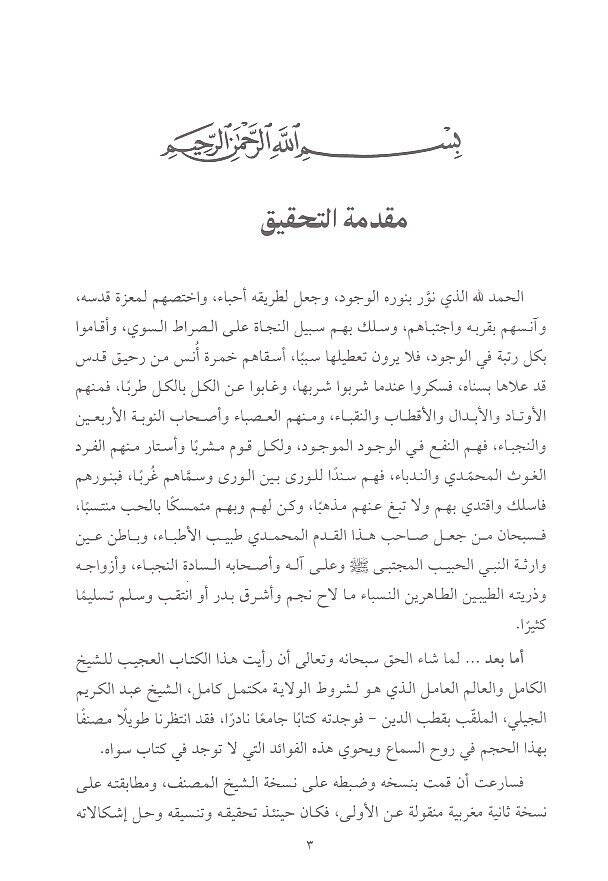 بِسْمِ اللَّهِ الرَّحْمَٰنِ الرَّحِيمِ
مقدمة التحقيق
الحمد لله الذي نوَّر بنوره الوجود، وجعل لطريقه أحباء، واختصهم لمعزة قدسه،
وآنسهم بقربه واجتباهم، وسلك بهم سبيل النجاة على الصراط السوي، وأقاموا
بكل رتبة في الوجود، فلا يرون تعطيلها سببًا، أسقاهم خمرة أُنس من رحيق قدس
قد علاها بسناه، فسكروا عندما شربوا شربها، وغابوا عن الكل بالكل طربًا، فمنهم
الأوتاد والأبدال والأقطاب والنقباء، ومنهم العصباء وأصحاب النوبة الأربعين
والنجباء، فهم النفع في الوجود الموجود، ولكل قوم مشربًا وأستار منهم الفرد
الغوث المحمّدي والندباء، فهم سندًا للورى بين الورى وسمَّاهم غُربًا، فبنورهم
فاسلك واقتدي بهم ولا تبغ عنهم مذهبًا، وكن لهم وبهم متمسكًا بالحب منتسبًا،
فسبحان من جعل صاحب هذا القدم المحمدي طبيب الأطباء، وباطن عين
وارثة النبي الحبيب المجتبى ﷺ وعلى آله وأصحابه السادة النجباء، وأزواجه
وذريته الطيبين الطاهرين النسباء ما لاح نجم وأشرق بدر أو انتقب وسلم تسليمًا
كثيرًا.
أما بعد ... لما شاء الحق سبحانه وتعالى أن رأيت هذا الكتاب العجيب للشيخ
الكامل والعالم العامل الذي هو لشروط الولاية مكتمل كامل، الشيخ عبد الكريم
الجيلي، الملقّب بقطب الدين – فوجدته كتابًا جامعًا نادرًا، فقد انتظرنا طويلًا مصنفًا
بهذا الحجم في روح السماع ويحوي هذه الفوائد التي لا توجد في كتاب سواه.
فسارعت أن قمت بنسخه وضبطه على نسخة الشيخ المصنف، ومطابقته على
نسخة ثانية مغربية منقولة عن الأولى، فكان حينئذ تحقيقه وتنسيقه وحل إشكالاته
٣